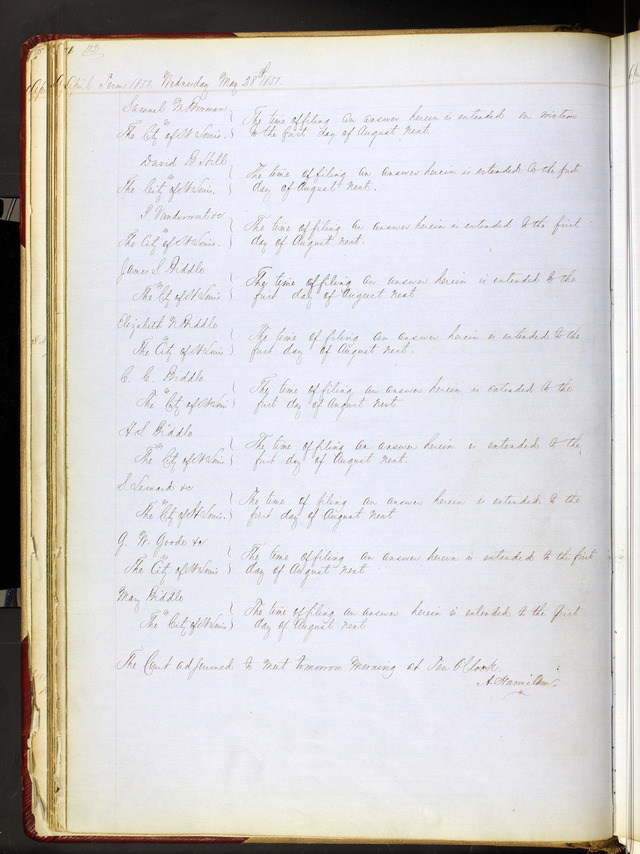 112
April Term 1851. Wednesday May 28th 1851.
Samuel N. Homan
vs
The City of St Louis.
The time of filing an answer herein is extended on motion
to the first day of August next
David B. Hill
vs
The City of St Louis.
The time of filing an answer herein is extended to the first
day of August next.
vs
The City of St Louis.
The time of filing an answer herein is extended to the first
day of August next.
James S Biddle
vs
The City of St Louis
The time of filing an answer herein is extended to the
first day of August next
Elizabeth N. Biddle
vs
The City of St Louis
The time of filing an answer herein is extended to the
first day of August next.
C. C. Biddle
vs
The City of St Louis
The time of filing an answer herein is extended to the
first day of August next
H. S. Biddle
vs
The City of St Louis
The time of filing an answer herein is extended to the
first day of August next.
S. Leonard &c
vs
The City of St Louis
The time of filing an answer herein is extended to the
first day of August next
G. W. Goode &c
vs
The City of St Louis
The time of filing an answer herein is extended to the first
day of August next
Mary Biddle
vs
The City of St Louis
The time of filing an answer herein is extended to the first
day of August next
The Court adjourned to meet tomorrow morning at Ten O'Clock
A. Hamilton